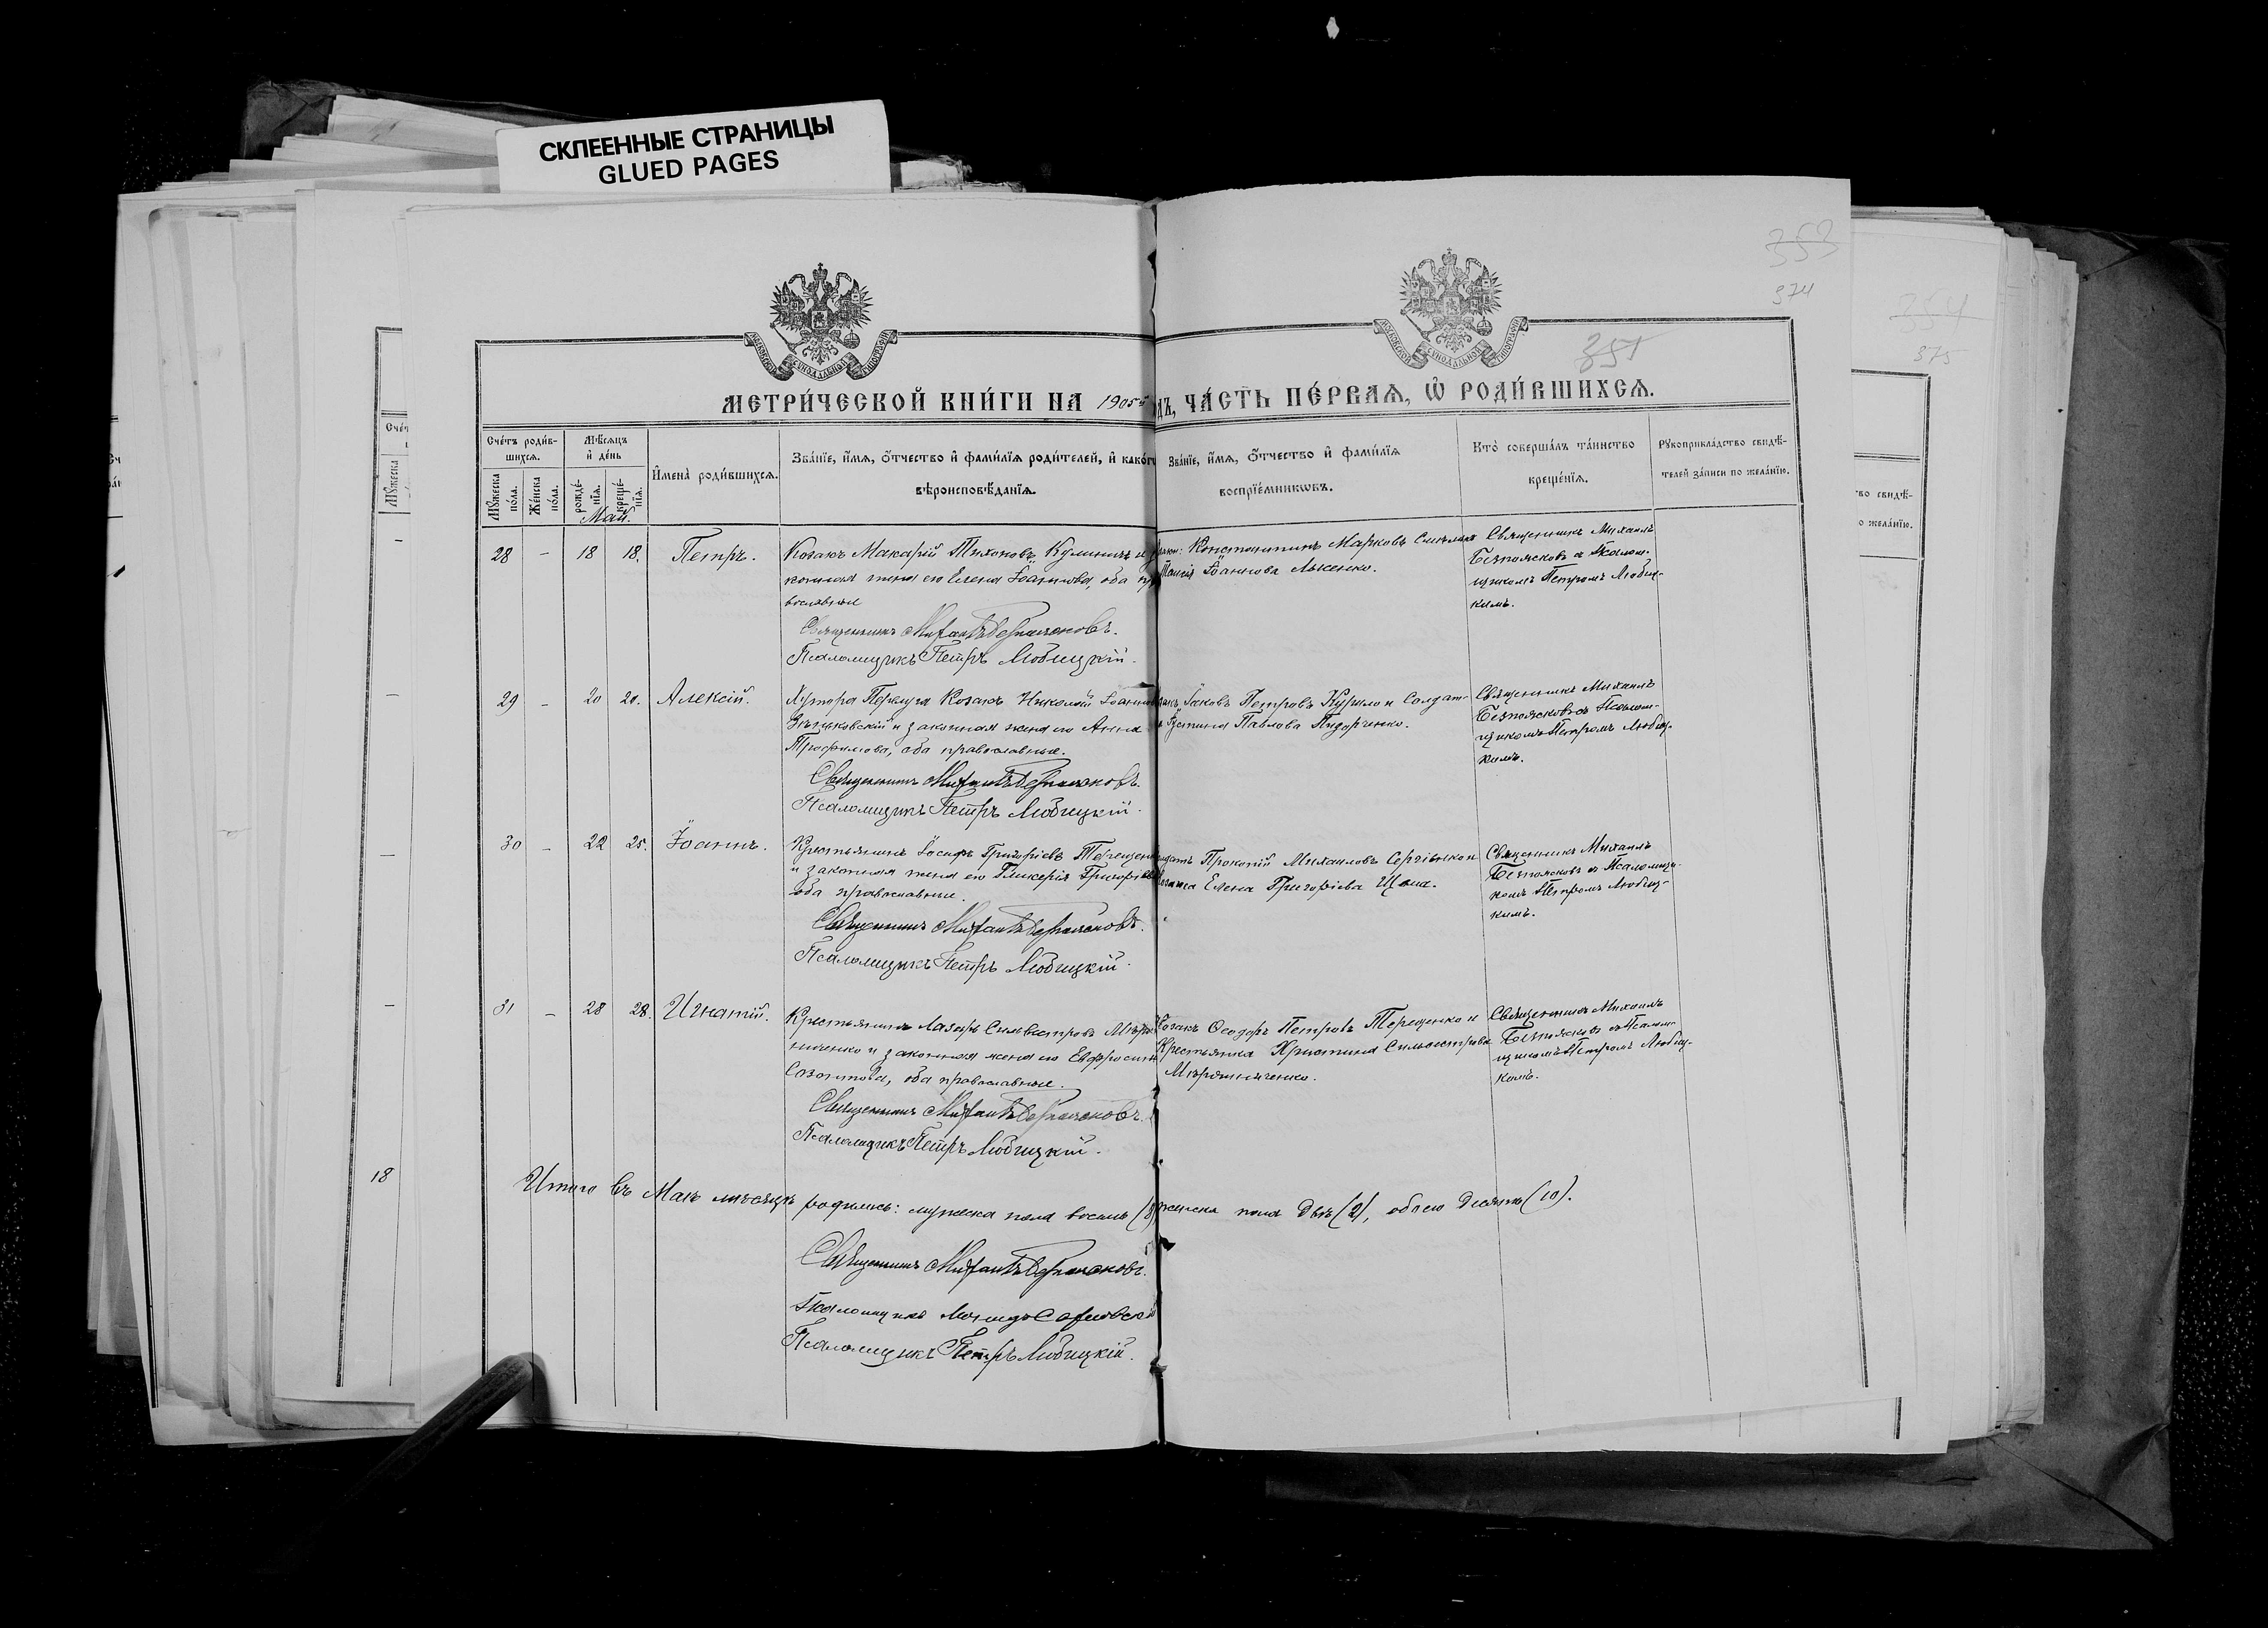 СКЛЕЕННЫЕ СТРАНИЦЫ
GLUED PAGES
353
374
351
354
375
МОСКОВСКОЙ СѴНОДАЛЬНОЙ ТИПОГРАФІИ
МОСКОВСКОЙ СѴНОДАЛЬНОЙ ТИПОГРАФІИ
МЕТРИ́ЧЕСКОЙ КНИ́ГИ НА 1905й
ДЪ, ЧА́СТЬ ПЕ́РВАѦ, Ѡ҆ РОДИ́ВШИХСѦ.
Сче́тъ роди́в-
шихсѧ.
Мꙋ́жеска по́ла.
Же́нска по́ла.
Мѣ́сѧцъ
и҆ де́нь
рожде́-
нїѧ.
креще́-
нїѧ.
И҆мена̀ роди́вшихсѧ.
Зва́нїе, и҆́мѧ, ѻ҆́тчество и҆ фами́лїѧ роди́телей, и҆ како́гѡ
вѣроисповѣ́данїѧ.
Зва́нїе, и҆́мѧ, ѻ҆́тчество и҆ фами́лїѧ
воспрїе́мникѡвъ.
Кто̀ соверша́лъ та́инство
креще́нїѧ.
Рꙋкоприкла́дство свидѣ́-
телей за́писи по жела́нїю.
Май.
28 – 18 18. Петръ.
Козакъ Макарій Тихоновъ Кулиничъ и
конная жена его Елена Іоаннова, оба пра
вославные
Священникъ Михаилъ Безпоясковъ.
Псаломщикъ Петръ Любицкій.
Константинъ Марковъ
Іоаннова Лысенко.
Священникъ Михаилъ
Безпоясковъ съ Псалом-
щикомъ Петромъ Любиц-
кимъ.
29 – 20 20. Алексій.
Хутора Козакъ Николай Іоанновъ
и законная жена его Анна
Трофимова, оба православные.
Священникъ Михаилъ Безпоясковъ.
Псаломщикъ Петръ Любицкій.
Іаковъ Петровъ Курило и Солдат-
Іустина Павлова Пидорченко.
Священникъ Михаилъ
Безпоясковъ съ Псалом-
щикомъ Петромъ Любиц-
кимъ.
30 – 22 25. Іоаннъ.
Крестьянинъ Іосифъ Григоріевъ Терещенко
и законная жена его Гликерія Григорьева
оба православные.
Священникъ Михаилъ Безпоясковъ.
Псаломщикъ Петръ Любицкій.
Прокопій Михаиловъ Сергіенко и
Елена Григоріева Цапа.
Священникъ Михаилъ
Безпоясковъ съ Псаломщи-
комъ Петромъ Любиц-
кимъ.
31 – 28 28. Игнатій.
Крестьянинъ Лазарь Сильвестровъ Мѣрош
ниченко и законная жена его Евфросинія
Созонтова, оба православные.
Священникъ Михаилъ Безпоясковъ.
Псаломщикъ Петръ Любицкій.
Козакъ Ѳеодоръ Петровъ Терещенко и
Крестьянка Христина Сильвестрова
Мѣрошниченко.
Священникъ Михаилъ
Безпоясковъ съ Псалом-
щикомъ Петромъ Любиц-
кимъ.
18
Итого въ Маѣ мѣсяцѣ родились: мужеска пола восемь (8) женска пола двѣ (2), обоего десять (10).
Священникъ Михаилъ Безпоясковъ.
Псаломщикъ
Псаломщикъ Петръ Любицкій.